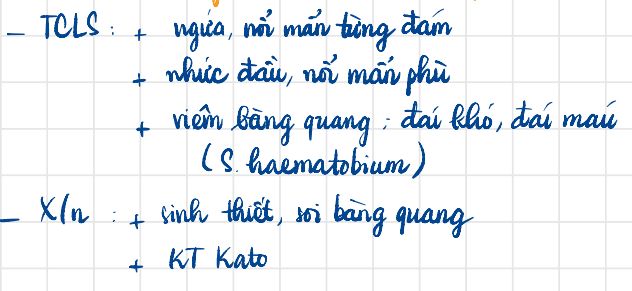 - TCLS : + ngứa, nổi mẩn từng đám
+ nhức đầu, nổi mẩn phù
+ viêm bàng quang : đái khó, đái máu
(S. haematobium)
- X/n : + sinh thiết, soi bàng quang
+ KT Kato